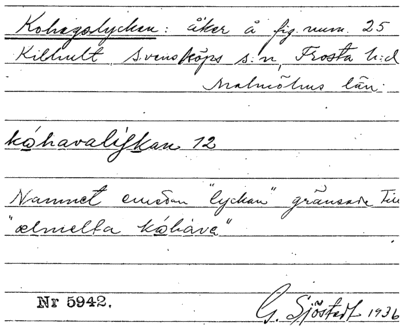 Kohagalyckan: åker å fig. num. 25
Kilhult Svensköps s:n, Frosta h:d
Malmöhus län.
kóhavalyckan 12
Namnet emedan "lyckan" gränsade till
"ælmelta kóhava"
Nr 5942. G. Sjöstedt 1936